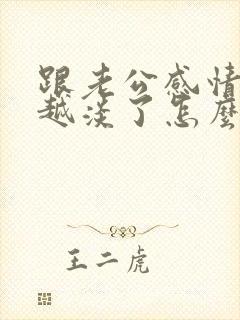 跟老公感情
越淡了怎麼
王二虎